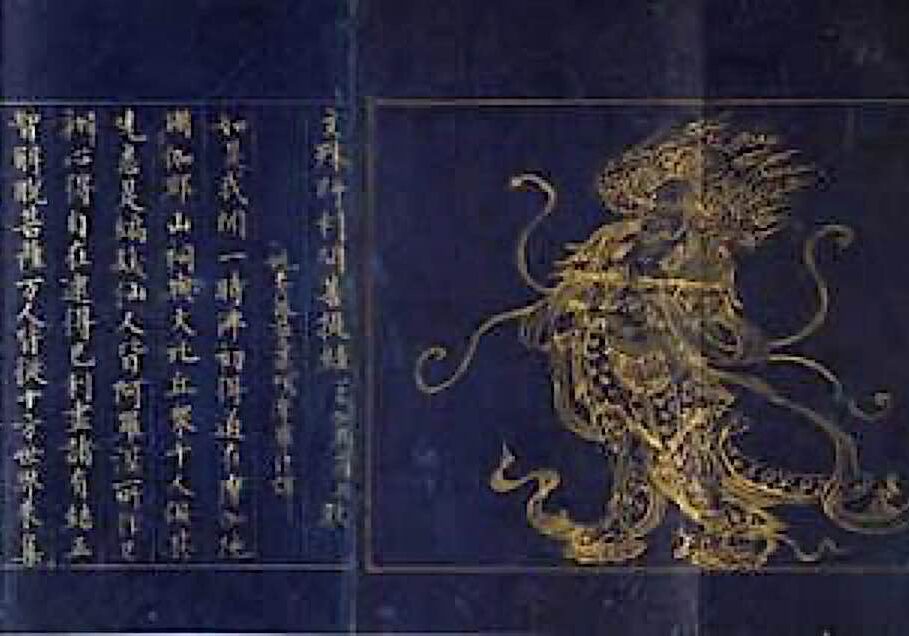 文殊師利問菩提經
如是我聞一時佛初得道在摩伽陁
國伽耶山祠與大比丘衆千人俱其
先悉是編髮仙人皆阿羅漢所作已
辦心得自在逮得已利盡諸有結正
智解脫菩薩万人皆從十方世界來集